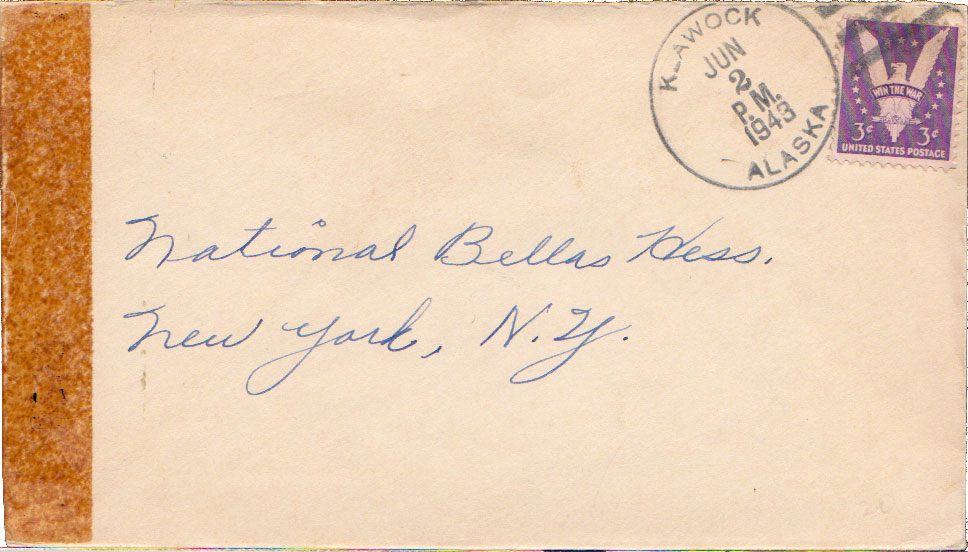 KLAWOCK
JUN
2
P.M.
1943
ALASKA
WIN THE WAR
3¢ 3¢
UNITED STATES POSTAGE
National Bellas Hess.
New York, N.Y.